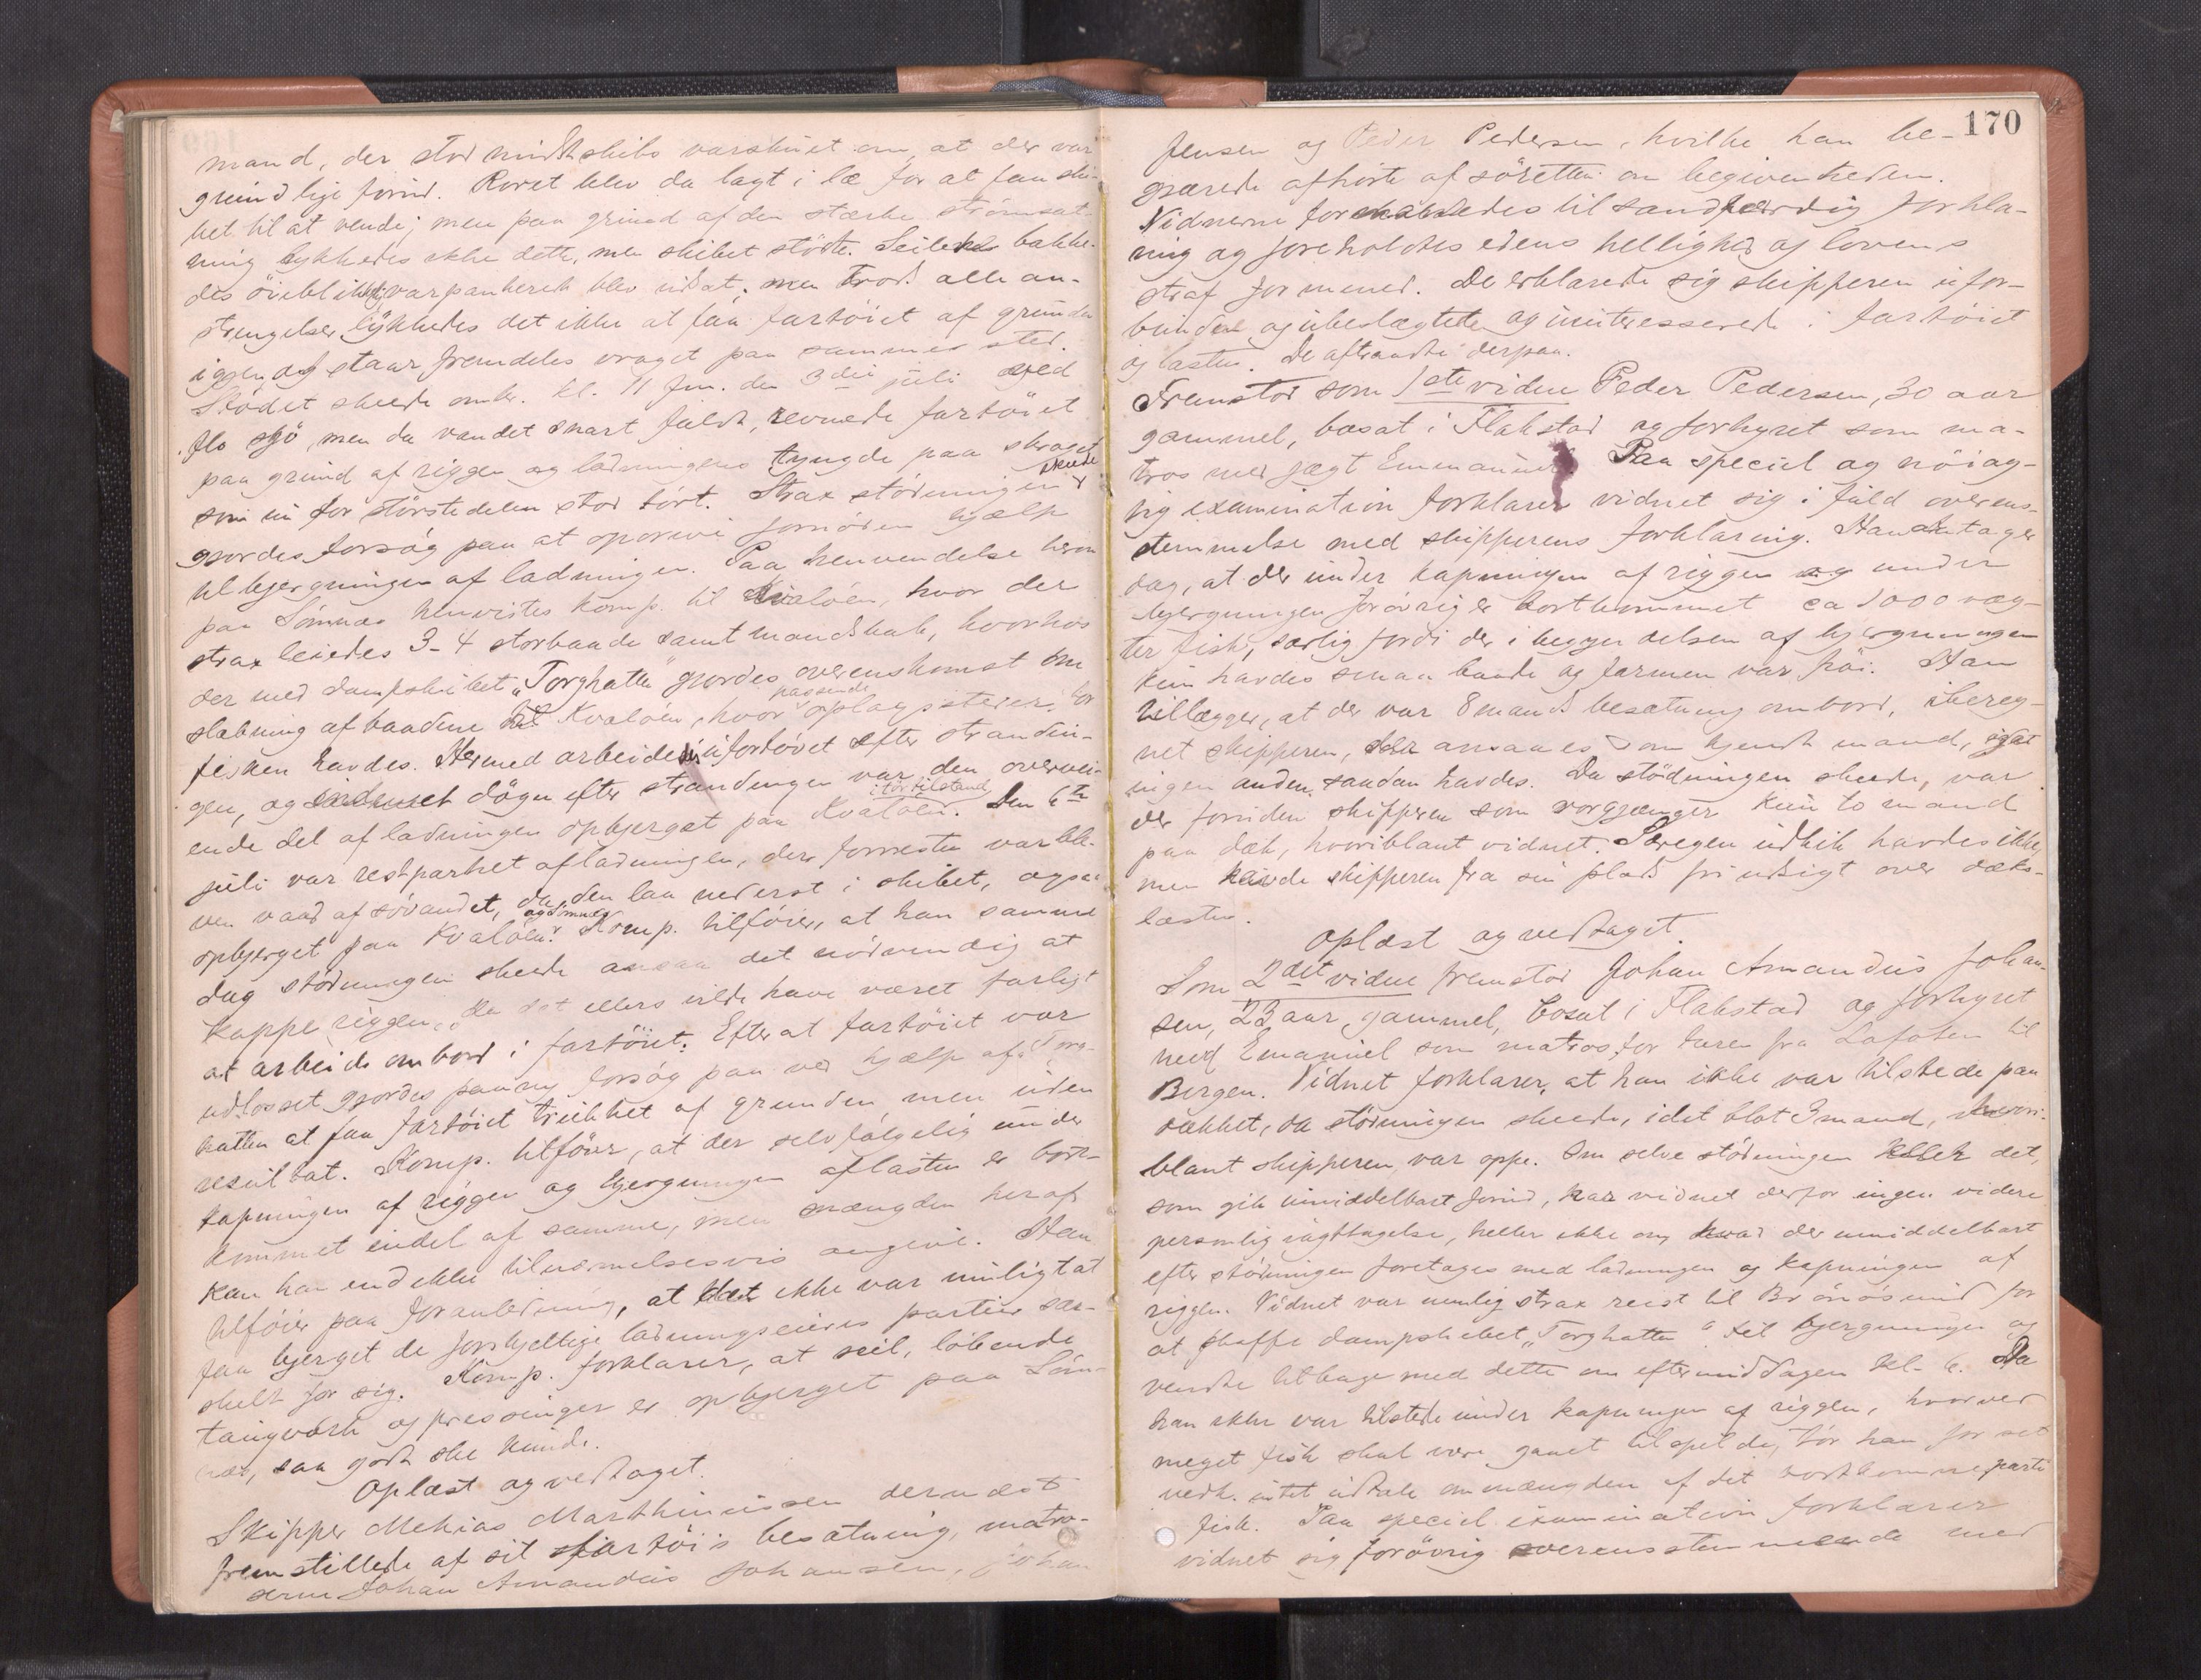 mand, der stod midtskibs varskuet om, at der var
grund lige forud. Roret blev da lagt i læ for at faa ski-
bet til at vende; men paa grund af den stærke strømsæt-
ning lykkedes ikke dette, men skibet stødte. Seilene bakke-
des øieblikkelig, varpankeret blev udsat; men trods alle an-
strengelser lykkedes det ikke at faa fartøiet af grunden
igjen, og staar fremdeles vraget paa samme sted.
Stødet skede omtr. kl. 11 fm. den 3die juli ved
flo sjø, men da vandet snart faldt, revnede fartøiet
paa grund af riggen og ladningens tyngde paa skroget
som nu for størstedelen stod tørt. Strax stødningen skede
gjordes forsøg paa at opdrive fornøden hjælp
til bjergningen af ladningen. Paa henvendelse herom
paa Sømnæs henvistes komp. til Kvaløen, hvor der
strax leiedes 3-4 storbaade samt mandskab, hvorhos
der med dampskibet „Torghatten" gjordes overenskomst om
slæbning af baadene til Kvaløen, hvor passende oplagssteder for
fisken havdes. Hermed arbeidedes uafbrudt efter strandin-
gen, og døgn efter strandingen var den overvei-
ende del af ladningen opbjerget i tør tilstand paa Kvaløen. Den 6te
juli var restpartiet af ladningen, der forresten var ble-
ven vaad af søvandet, da den laa nederst i skibet, ogsaa
opbjerget paa Kvaløen og Sømnæs. Komp. tilføier, at han samme
dag stødningen skede ansaa det nødvendig at
kappe riggen, da det ellers vilde have været farligt
at arbeide ombord i fartøiet. Efter at fartøiet var
udlosset gjordes paany forsøg paa ved hjælp af „Torg-
hatten at faa fartøiet trukket af grunden men uden
resultat. Komp. tilføier, at der selvfølgelig under
kapningen af riggen og bjergningen af lasten er bort-
kommet endel af samme, men mængden heraf
kan han end ikke tilnærmelsesvis angive. Han
tilføier paa foranledning, at det ikke var muligt at
faa bjerget de forskjellige ladningseieres partier sær-
skilt for sig. Komp. forklarer, at seil, løbende
taugværk og presenninger er opbjerget paa Søm-
næs, saa godt ske kunde.
Oplæst og vedtaget.
Skipper Mekias Marthinussen dernæst
fremstillede af sit fartøis besætning, matro-
serne Johan Amandus Johansen, Johan
170
Jensen og Peder Pedersen, hvilke han be-
gjærede afhørte af søretten om begivenheden.
Vidnerne formanedes til sandfærdig forkla-
ring og foreholdtes edens hellighed og lovens
straf for mened. De erklærede sig skipperen ufor-
bundne og ubeslægtede og uinteresserede i fartøiet
og lasten. De aftraadte derpaa.
Fremstod som 1ste vidne Peder Pedersen, 30 aar
gammel, bosat i Flakstad og forhyret som ma-
tros med jægt Emmanuel. Paa speciel og nøiag-
tig examination forklarer vidnet sig i fuld overens-
stemmelse med skipperens forklaring. Han antager
dog, at der under kapningen af riggen og under
bjergningen forøvrig er bortkommet ca 1000 væg-
ter fisk, særlig fordi der i begyndelsen af bjergningen
kun havdes smaa baade og farmen var høi. Han
tillægger, at der var 8 mands besætning ombord, ibereg-
net skipperen, der ansaaes som kjendt mand, idet
ingen anden saadan havdes. Da stødningen skede, var
der foruden skipperen som rorgjænger kun to mand
paa dæk, hvoriblant vidnet. Særegen udkik havdes ikke,
men havde skipperen fra sin plads fri udsigt over dæks-
lasten.
Oplæst og vedtaget.
Som 2det vidne fremstod Johan Amandus Johan-
sen, 23 aar gammel, bosat i Flakstad og forhyret
med Emanuel som matros for turen fra Lofoten til
Bergen. Vidnet forklarer, at han ikke var tilstede paa
dækket, da stødningen skede, idet blot 3 mand, hvori-
blant skipperen, var oppe. Om selve stødningen eller det,
som gik umiddelbart forud, har vidnet derfor ingen videre
personlig iagttagelse, heller ikke om hvad der umiddelbart
efter stødningen foretoges med ladningen og kapningen af
riggen. Vidnet var nemlig strax reist til Brønøsund for
at skaffe dampskibet „Torghatten" til bjergningen og
vendte tilbage med dette om eftermiddagen kl. 6. Da
han ikke var tilstede under kapningen af riggen, hvorved
meget fisk skal være gaaet tilspilde, tør han for sit
vedk. intet udtale om mængden af det bortkomne parti
fisk. Paa speciel examination forklarer
vidnet sig forøvrig overensstemmende med